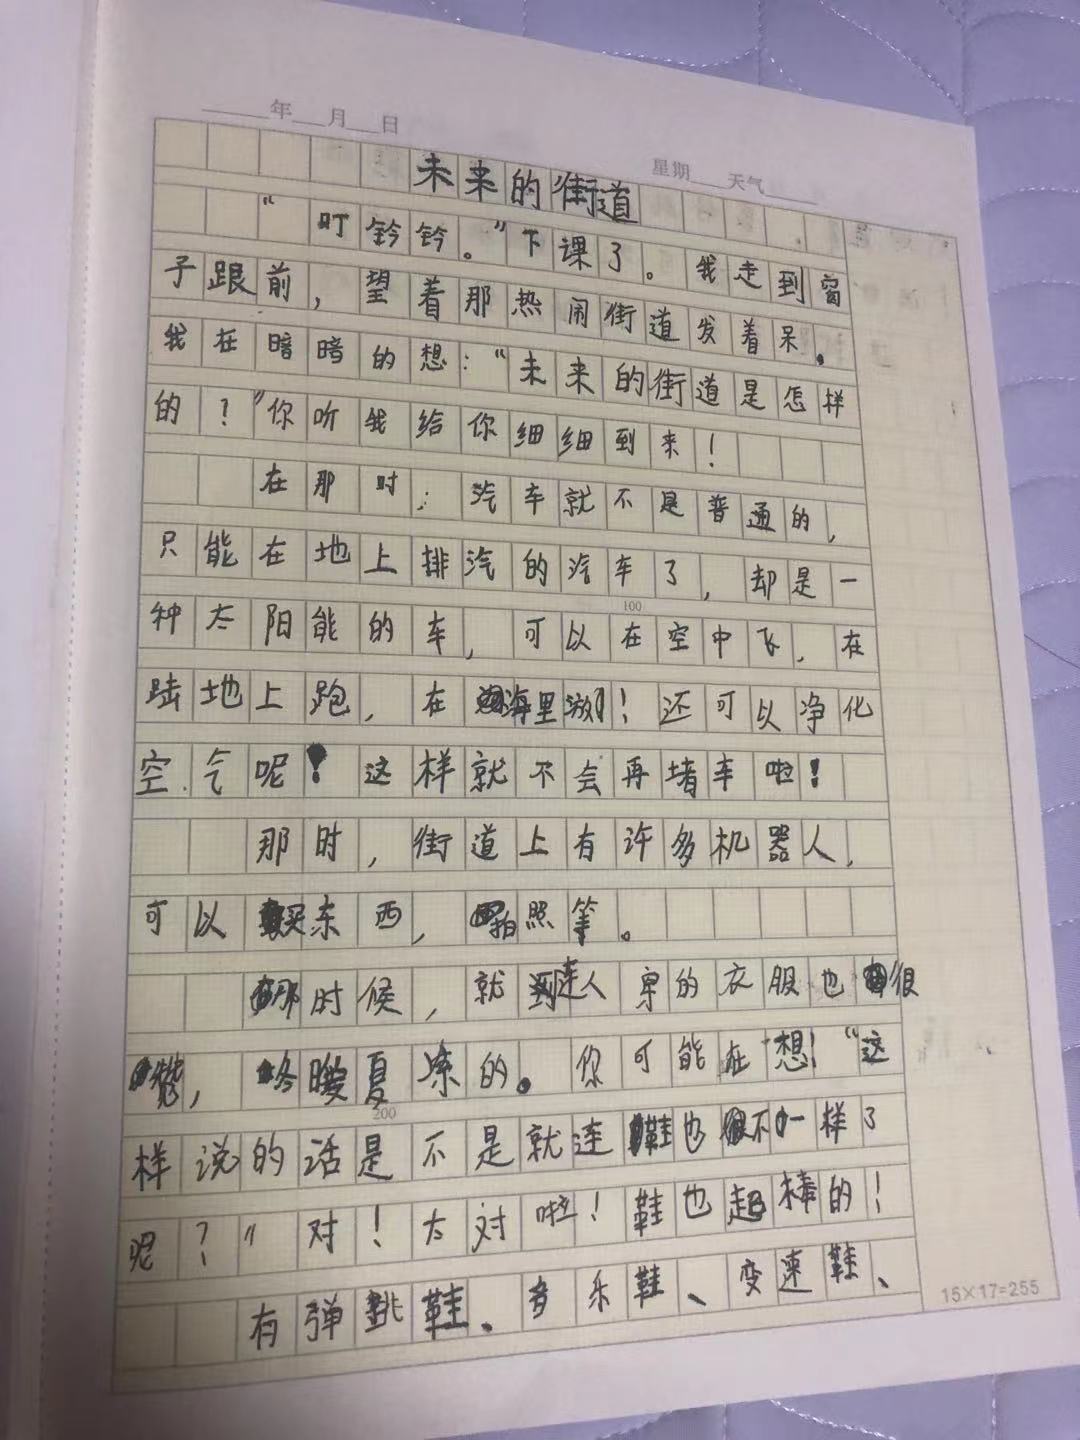 年 月 日
星期 天气
未来的街道
“叮钤钤。”下课了。我走到窗
子跟前，望着那热闹街道发着呆。
我在暗暗的想：“未来的街道是怎样
的？”你听我给你细细到来！
在那时：汽车就不是普通的，
只能在地上排汽的汽车了，却是一
种太阳能的车，可以在空中飞，在
陆地上跑，在海里游！还可以净化
空气呢！这样就不会再堵车啦！
那时，街道上有许多机器人，
可以买东西，拍照等。
那时候，就连人穿的衣服也很
，冬暖夏凉的。你可能在想！“这
100
样说的话是不是就连鞋也不一样了
200
呢？”对！太对啦！鞋也超棒的！
有弹跳鞋、音乐鞋、变速鞋、
15×17=255